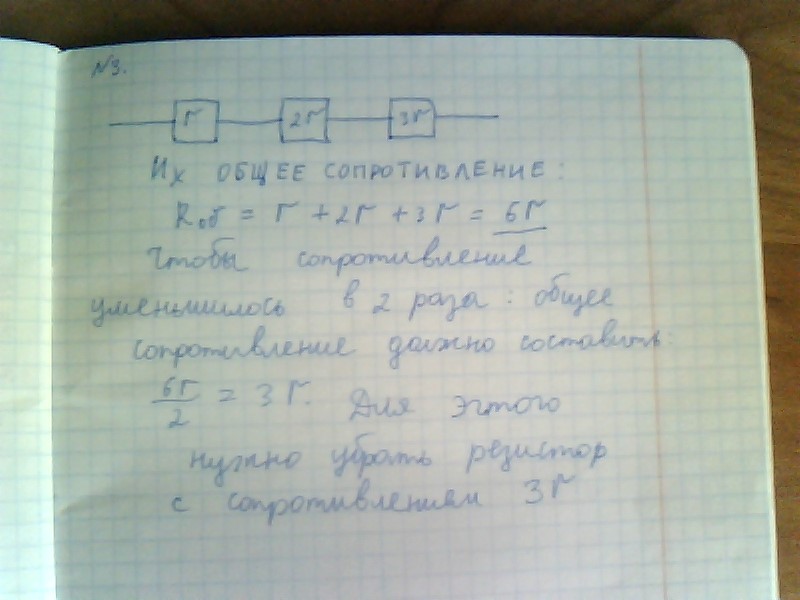 №3.
r 2r 3r
Их ОБЩЕЕ СОПРОТИВЛЕНИЕ:
Rоб = r + 2r + 3r = 6r
Чтобы сопротивление
уменьшилось в 2 раза: общее
сопротивление должно составить:
6r/2 = 3r. Для эттого
нужно убрать резистор
с сопротивлением 3r